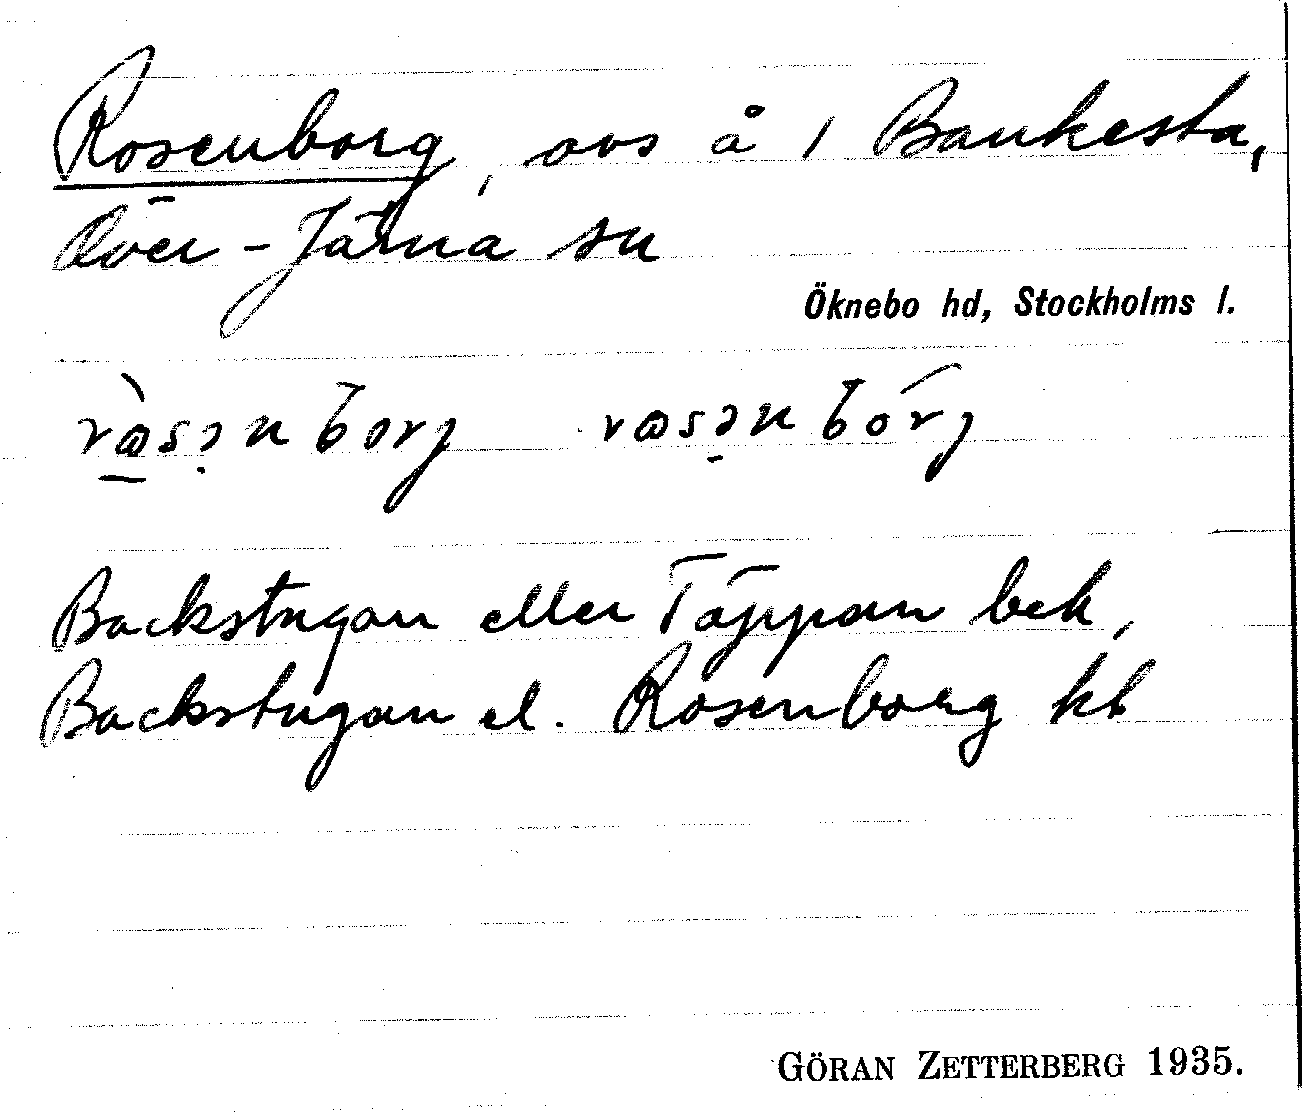 Rosenborg, avs å 1 Bankesta,
Över-Järna sn
Öknebo hd, Stockholms l.
Backstugan eller Täppan bek,
Backstugan el. Rosenborg kb
GÖRAN ZETTERBERG 1935.